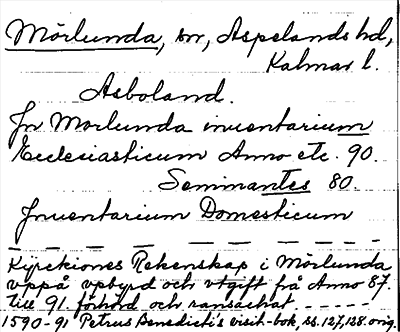 Mörlunda, sn, Aspelands hd,
Kalmar l.
Asboland.
Jn Mörlunda inventarium
Ecclesiasticum Anno etc. 90.
Seminantes 80.
Jnuentarium Domesticum
Kyrckiones Rekenskap i Mörlunda
vppå vpbyrd och vtgift frå Anno 87.
till 91. förhörd och ransachat - - - - -
1590-91 Petrus Benedicti's visit-bok ss. 127, 128. orig.